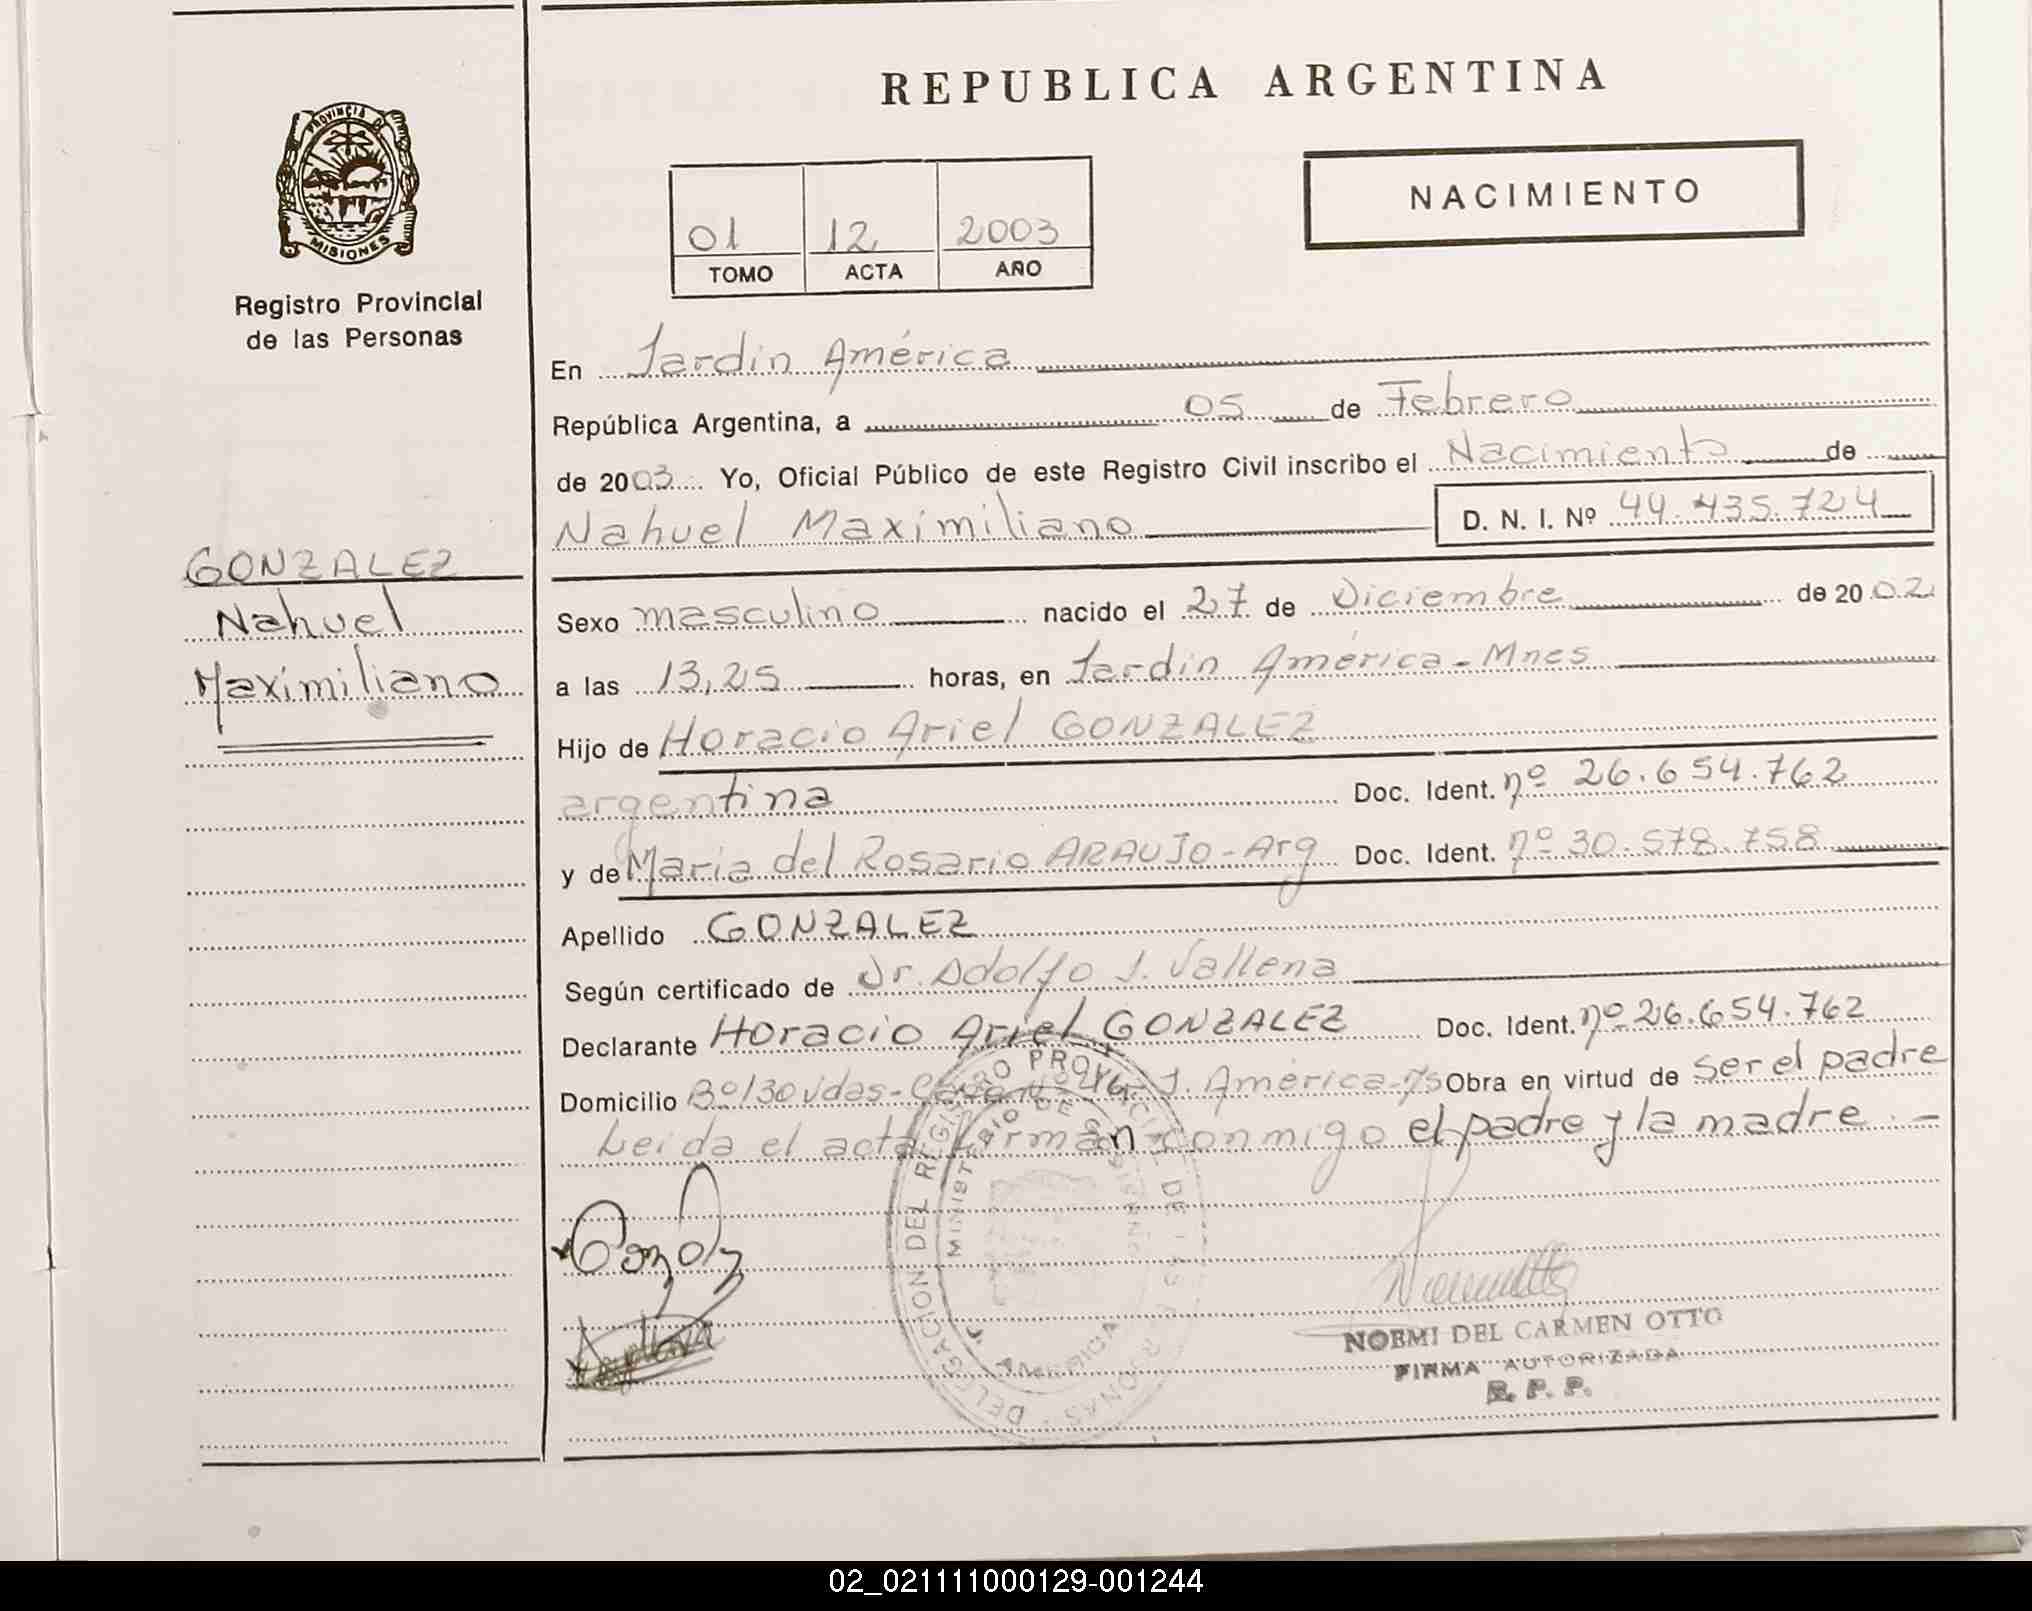 REPUBLICA ARGENTINA
PROVINCIA DE
MISIONES
Registro Provincial
de las Personas
01 12 2003
TOMO ACTA AÑO
NACIMIENTO
En Jardín América
República Argentina, a 05 de Febrero
de 2003 Yo, Oficial Público de este Registro Civil inscribo el Nacimiento de
Nahuel Maximiliano D. N. I. Nº 44.435.724
GONZALEZ
Nahuel
Maximiliano
Sexo masculino nacido el 27 de Diciembre de 2002
a las 13,25 horas, en Jardín América - Mnes
Hijo de Horacio Ariel GONZALEZ
argentina Doc. Ident. nº 26.654.762
y de María del Rosario ARAUJO - Arg Doc. Ident. nº 30.578.758
Apellido GONZALEZ
Según certificado de Dr. Adolfo J. Vallena
Declarante Horacio Ariel GONZALEZ Doc. Ident. nº 26.654.762
Domicilio Bº 130 vdas - J. América - Obra en virtud de ser el padre
Leida el acta firman conmigo el padre y la madre. -
DELEGACION DEL REGISTRO PROVINCIAL DE LAS PERSONAS
MINISTERIO DE GOBIERNO
AMERICA
NOEMI DEL CARMEN OTTO
FIRMA AUTORIZADA
R. P. P.
02_021111000129-001244